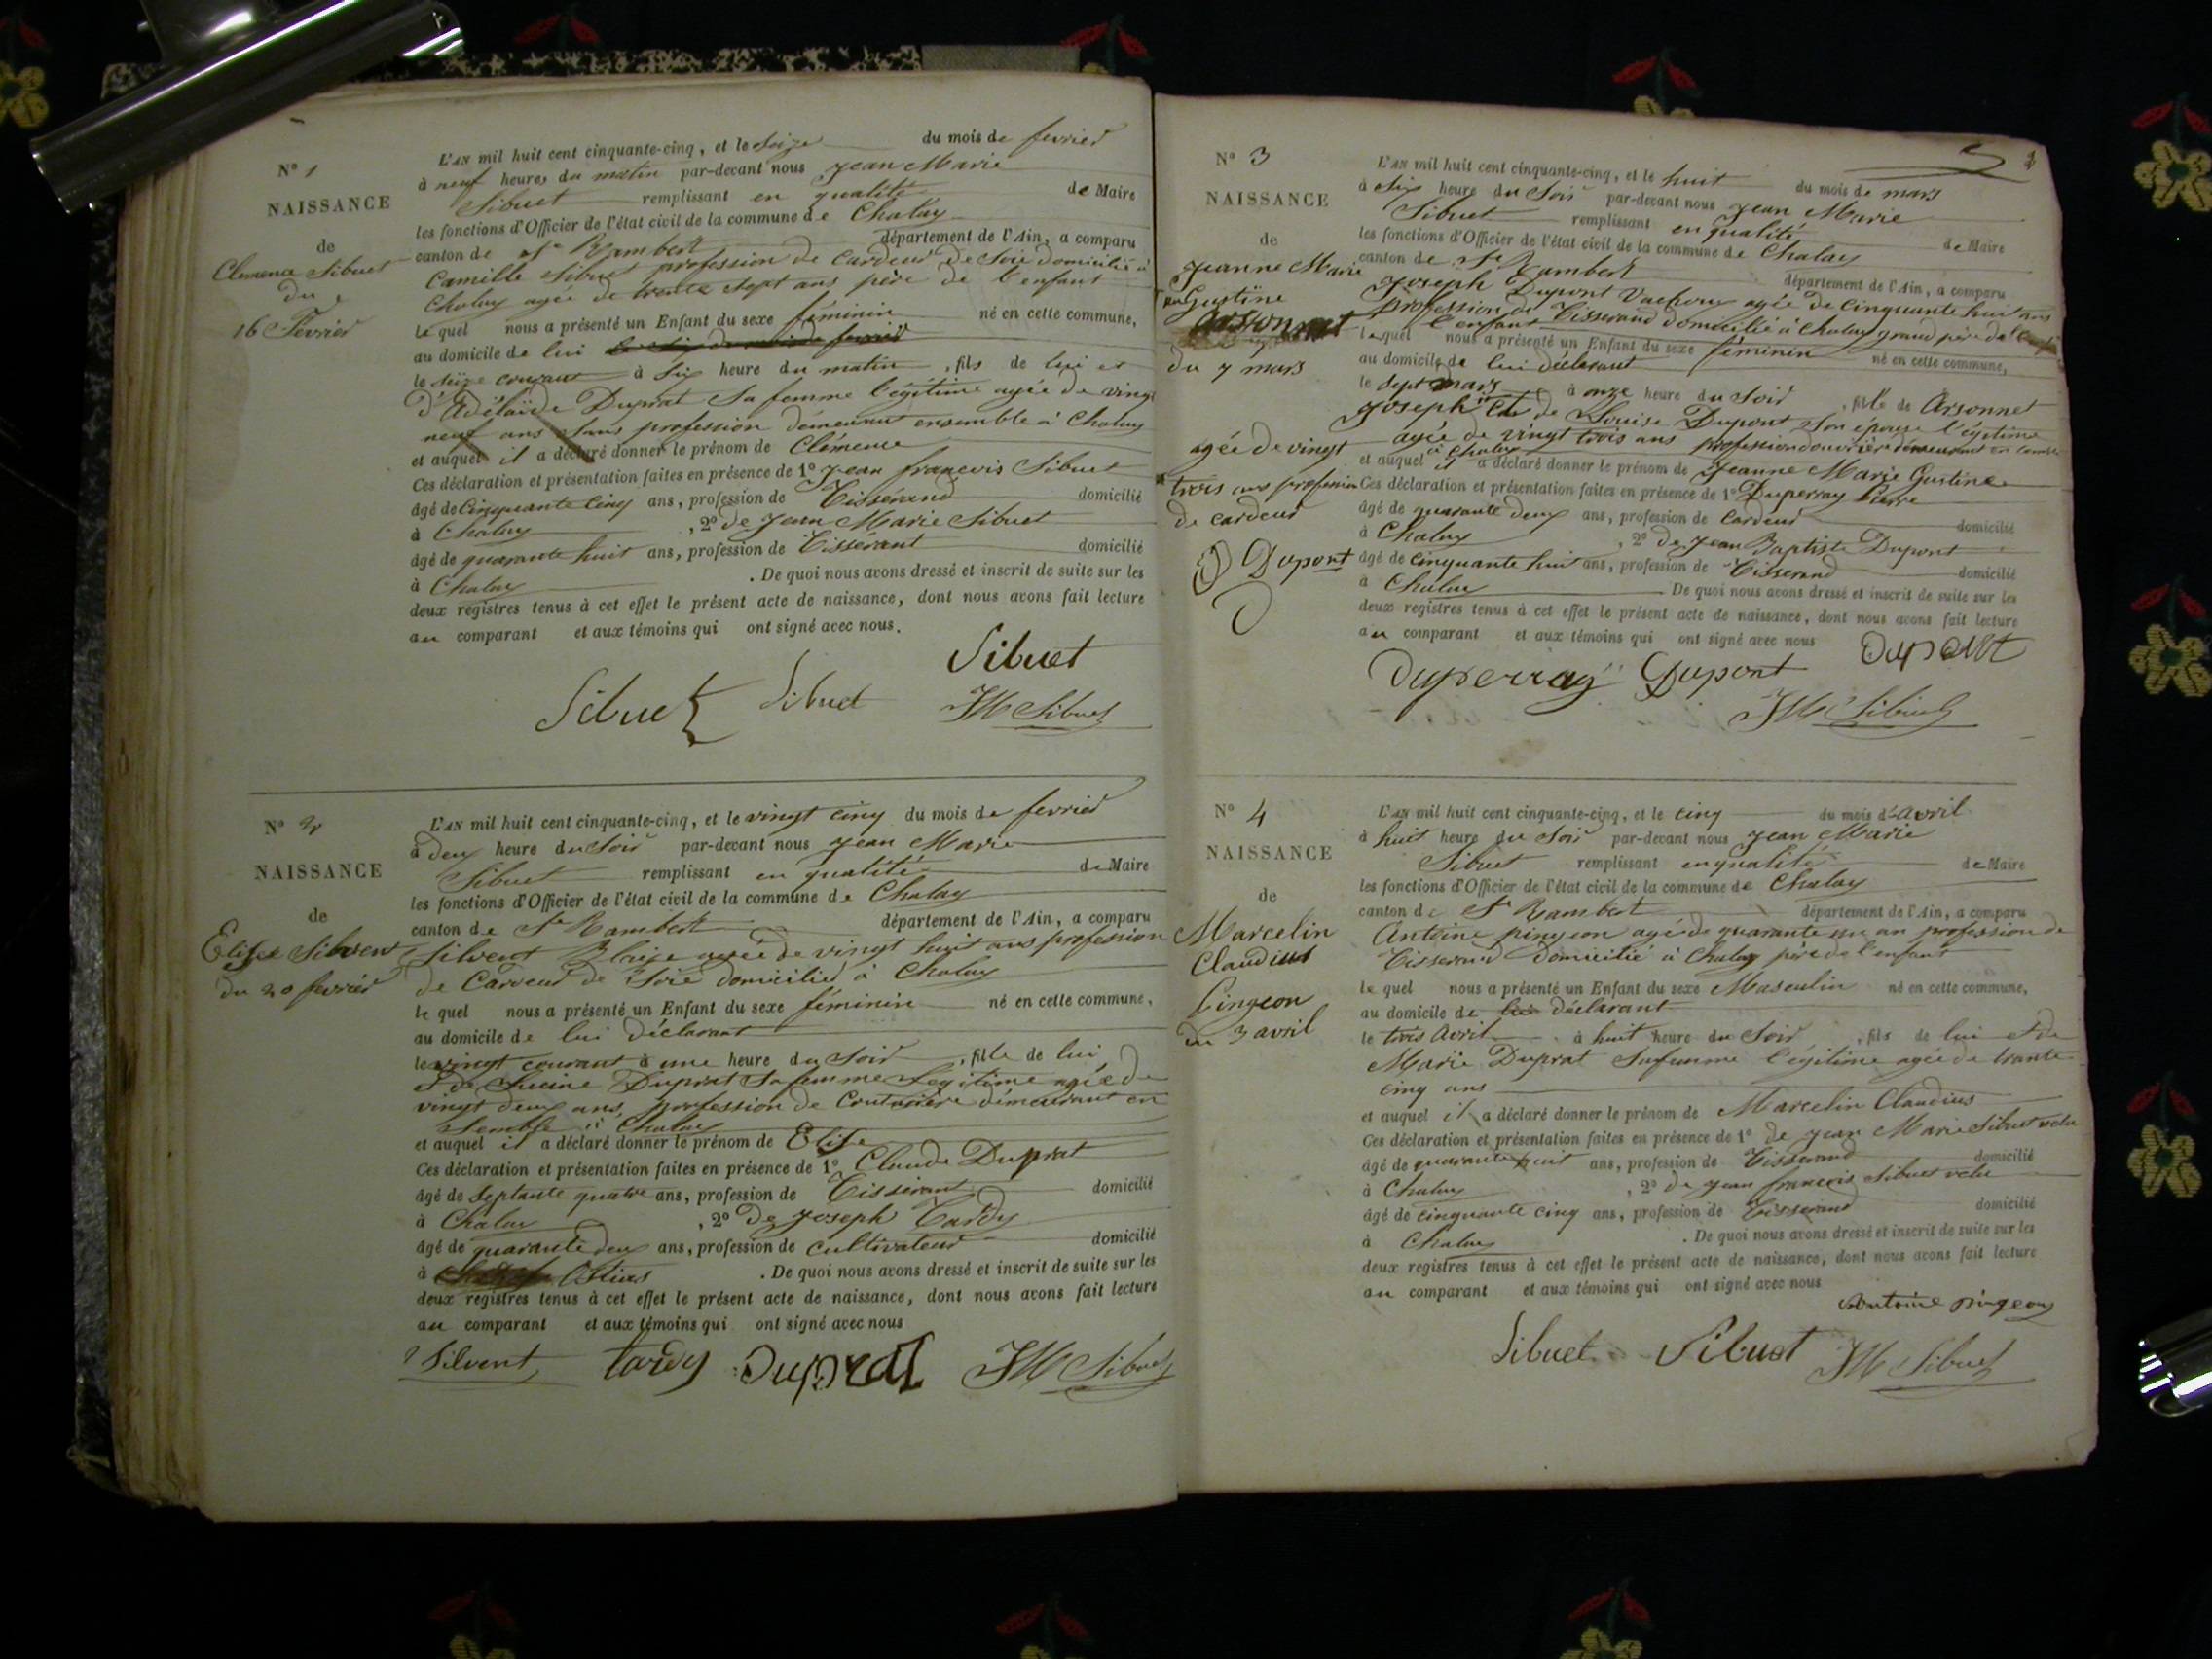 N° 1
NAISSANCE
de
Clémence Sibuet
du
16 Février
L'AN mil huit cent cinquante-cinq, et le Seize du mois de fevrier
à neuf heures du matin par-devant nous Jean Marie
Sibuet remplissant en qualité de Maire
les fonctions d'Officier de l'état civil de la commune de Chaley
canton de St Rambert département de l'Ain, a comparu
Camille Sibuet profession de Cardeur de Soie domicilié à
Chaley agée de trente sept ans père de l'enfant
le quel nous a présenté un Enfant du sexe féminin né en cette commune,
au domicile de lui
le seize courant à Six heure du matin, fils de lui et
d'Adélaïde Duprat Sa femme légitime agée de vingt
neuf ans Sans profession démeurant ensemble à Chaley
et auquel il a déclaré donner le prénom de Clémence
Ces déclaration et présentation faites en présence de 1° Jean francois Sibuet
âgé de Cinquante Cinq ans, profession de Tissérand domicilié
à Chaley, 2° de Jean Marie Sibuet
âgé de quarante huit ans, profession de Tissérant domicilié
à Chaley. De quoi nous avons dressé et inscrit de suite sur les
deux registres tenus à cet effet le présent acte de naissance, dont nous avons fait lecture
au comparant et aux témoins qui ont signé avec nous.
Sibuet
Sibuet Sibuet JM Sibuet
N° 2
NAISSANCE
de
Elise Silvent
du 20 fevrier
L'AN mil huit cent cinquante-cinq, et le vingt cinq du mois de fevrier
à deux heure du Soir par-devant nous Jean Marie
Sibuet remplissant en qualité de Maire
les fonctions d'Officier de l'état civil de la commune de Chaley
canton de St Rambert département de l'Ain, a comparu
Silvent Blaise agée de vingt huit ans profession
de Cardeur de Soie domicilié à Chaley
le quel nous a présenté un Enfant du sexe féminin né en cette commune,
au domicile de lui déclarant
le vingt courant à une heure du Soir, fille de lui
et de Lucine Duprat Sa femme Légitime agée de
vingt deux ans, profession de Couturière démeurant en
semble à Chaley
et auquel il a déclaré donner le prénom de Elise
Ces déclaration et présentation faites en présence de 1° Claude Duprat
âgé de Septante quatre ans, profession de Tissérant domicilié
à Chaley, 2° de Joseph Tardy
âgé de quarante deux ans, profession de Cultivateur domicilié
à . De quoi nous avons dressé et inscrit de suite sur les
deux registres tenus à cet effet le présent acte de naissance, dont nous avons fait lecture
au comparant et aux témoins qui ont signé avec nous
Silvent tardy Duprat JM Sibuet
N° 3
NAISSANCE
de
Jeanne Marie
Gustine
Arsonnet
du 7 mars
agée de vingt
trois ans profession
de cardeur
Dupont
L'AN mil huit cent cinquante-cinq, et le huit du mois de mars
à Six heure du Soir par-devant nous Jean Marie
Sibuet remplissant en qualité de Maire
les fonctions d'Officier de l'état civil de la commune de Chaley
canton de St Rambert département de l'Ain, a comparu
Joseph Dupont Vachoux agée de Cinquante huit ans
profession de Tisserand domicilié à Chaley grand père de
l'enfant
le quel nous a présenté un Enfant du sexe féminin né en cette commune,
au domicile de lui déclarant
le Sept mars à onze heure du Soir, fille de Arsonnet
Joseph et de Louise Dupont Son épouse légitime
agée de vingt trois ans profession d'ouvrière démeurant ensemble
à Chaley
et auquel il a déclaré donner le prénom de Jeanne Marie Gustine
Ces déclaration et présentation faites en présence de 1° Duperray Pierre
âgé de quarante deux ans, profession de Cardeur domicilié
à Chaley, 2° de Jean Baptiste Dupont
âgé de cinquante huit ans, profession de Tisserand domicilié
à Chaley De quoi nous avons dressé et inscrit de suite sur les
deux registres tenus à cet effet le présent acte de naissance, dont nous avons fait lecture
au comparant et aux témoins qui ont signé avec nous Dupont
Duperray Dupont
JM Sibuet
N° 4
NAISSANCE
de
Marcelin
Claudius
Pingeon
du 3 avril
L'AN mil huit cent cinquante-cinq, et le cinq du mois d'avril
à huit heure du Soir par-devant nous Jean Marie
Sibuet remplissant en qualité de Maire
les fonctions d'Officier de l'état civil de la commune de Chaley
canton de St Rambert département de l'Ain, a comparu
Antoine pingeon agé de quarante un an profession de
Tisserand domicilié à Chaley père de l'enfant
le quel nous a présenté un Enfant du sexe Masculin né en cette commune,
au domicile de lui déclarant
le trois avril à huit heure du Soir, fils de lui et de
Marie Duprat Sa femme légitime agée de trante
cinq ans
et auquel il a déclaré donner le prénom de Marcelin Claudius
Ces déclaration et présentation faites en présence de 1° de Jean Marie Sibuet
âgé de quarante huit ans, profession de Tisserand domicilié
à Chaley, 2° de Jean francois Sibuet
âgé de cinquante cinq ans, profession de Tisserand domicilié
à Chaley. De quoi nous avons dressé et inscrit de suite sur les
deux registres tenus à cet effet le présent acte de naissance, dont nous avons fait lecture
au comparant et aux témoins qui ont signé avec nous
Antoine pingeon
Sibuet Sibuet JM Sibuet